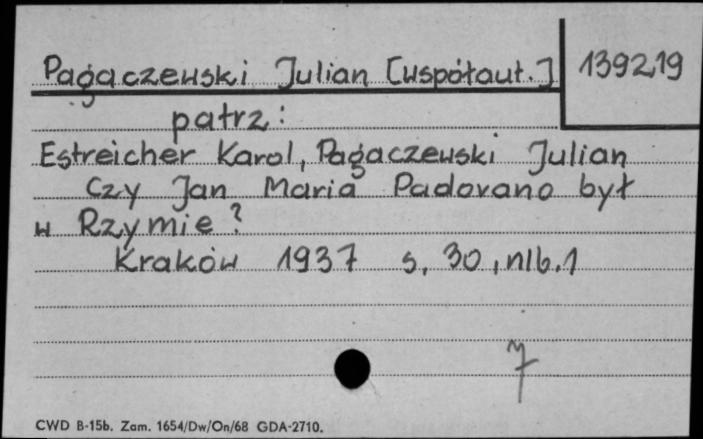 Pagaczewski Julian [współaut.]
139219
patrz:
Estreicher Karol, Pagaczewski Julian
Czy Jan Maria Padovano był
w Rzymie?
Kraków 1937 s. 30, nlb. 1
7
CWD B-15b. Zam. 1654/Dw/On/68 GDA-2710.